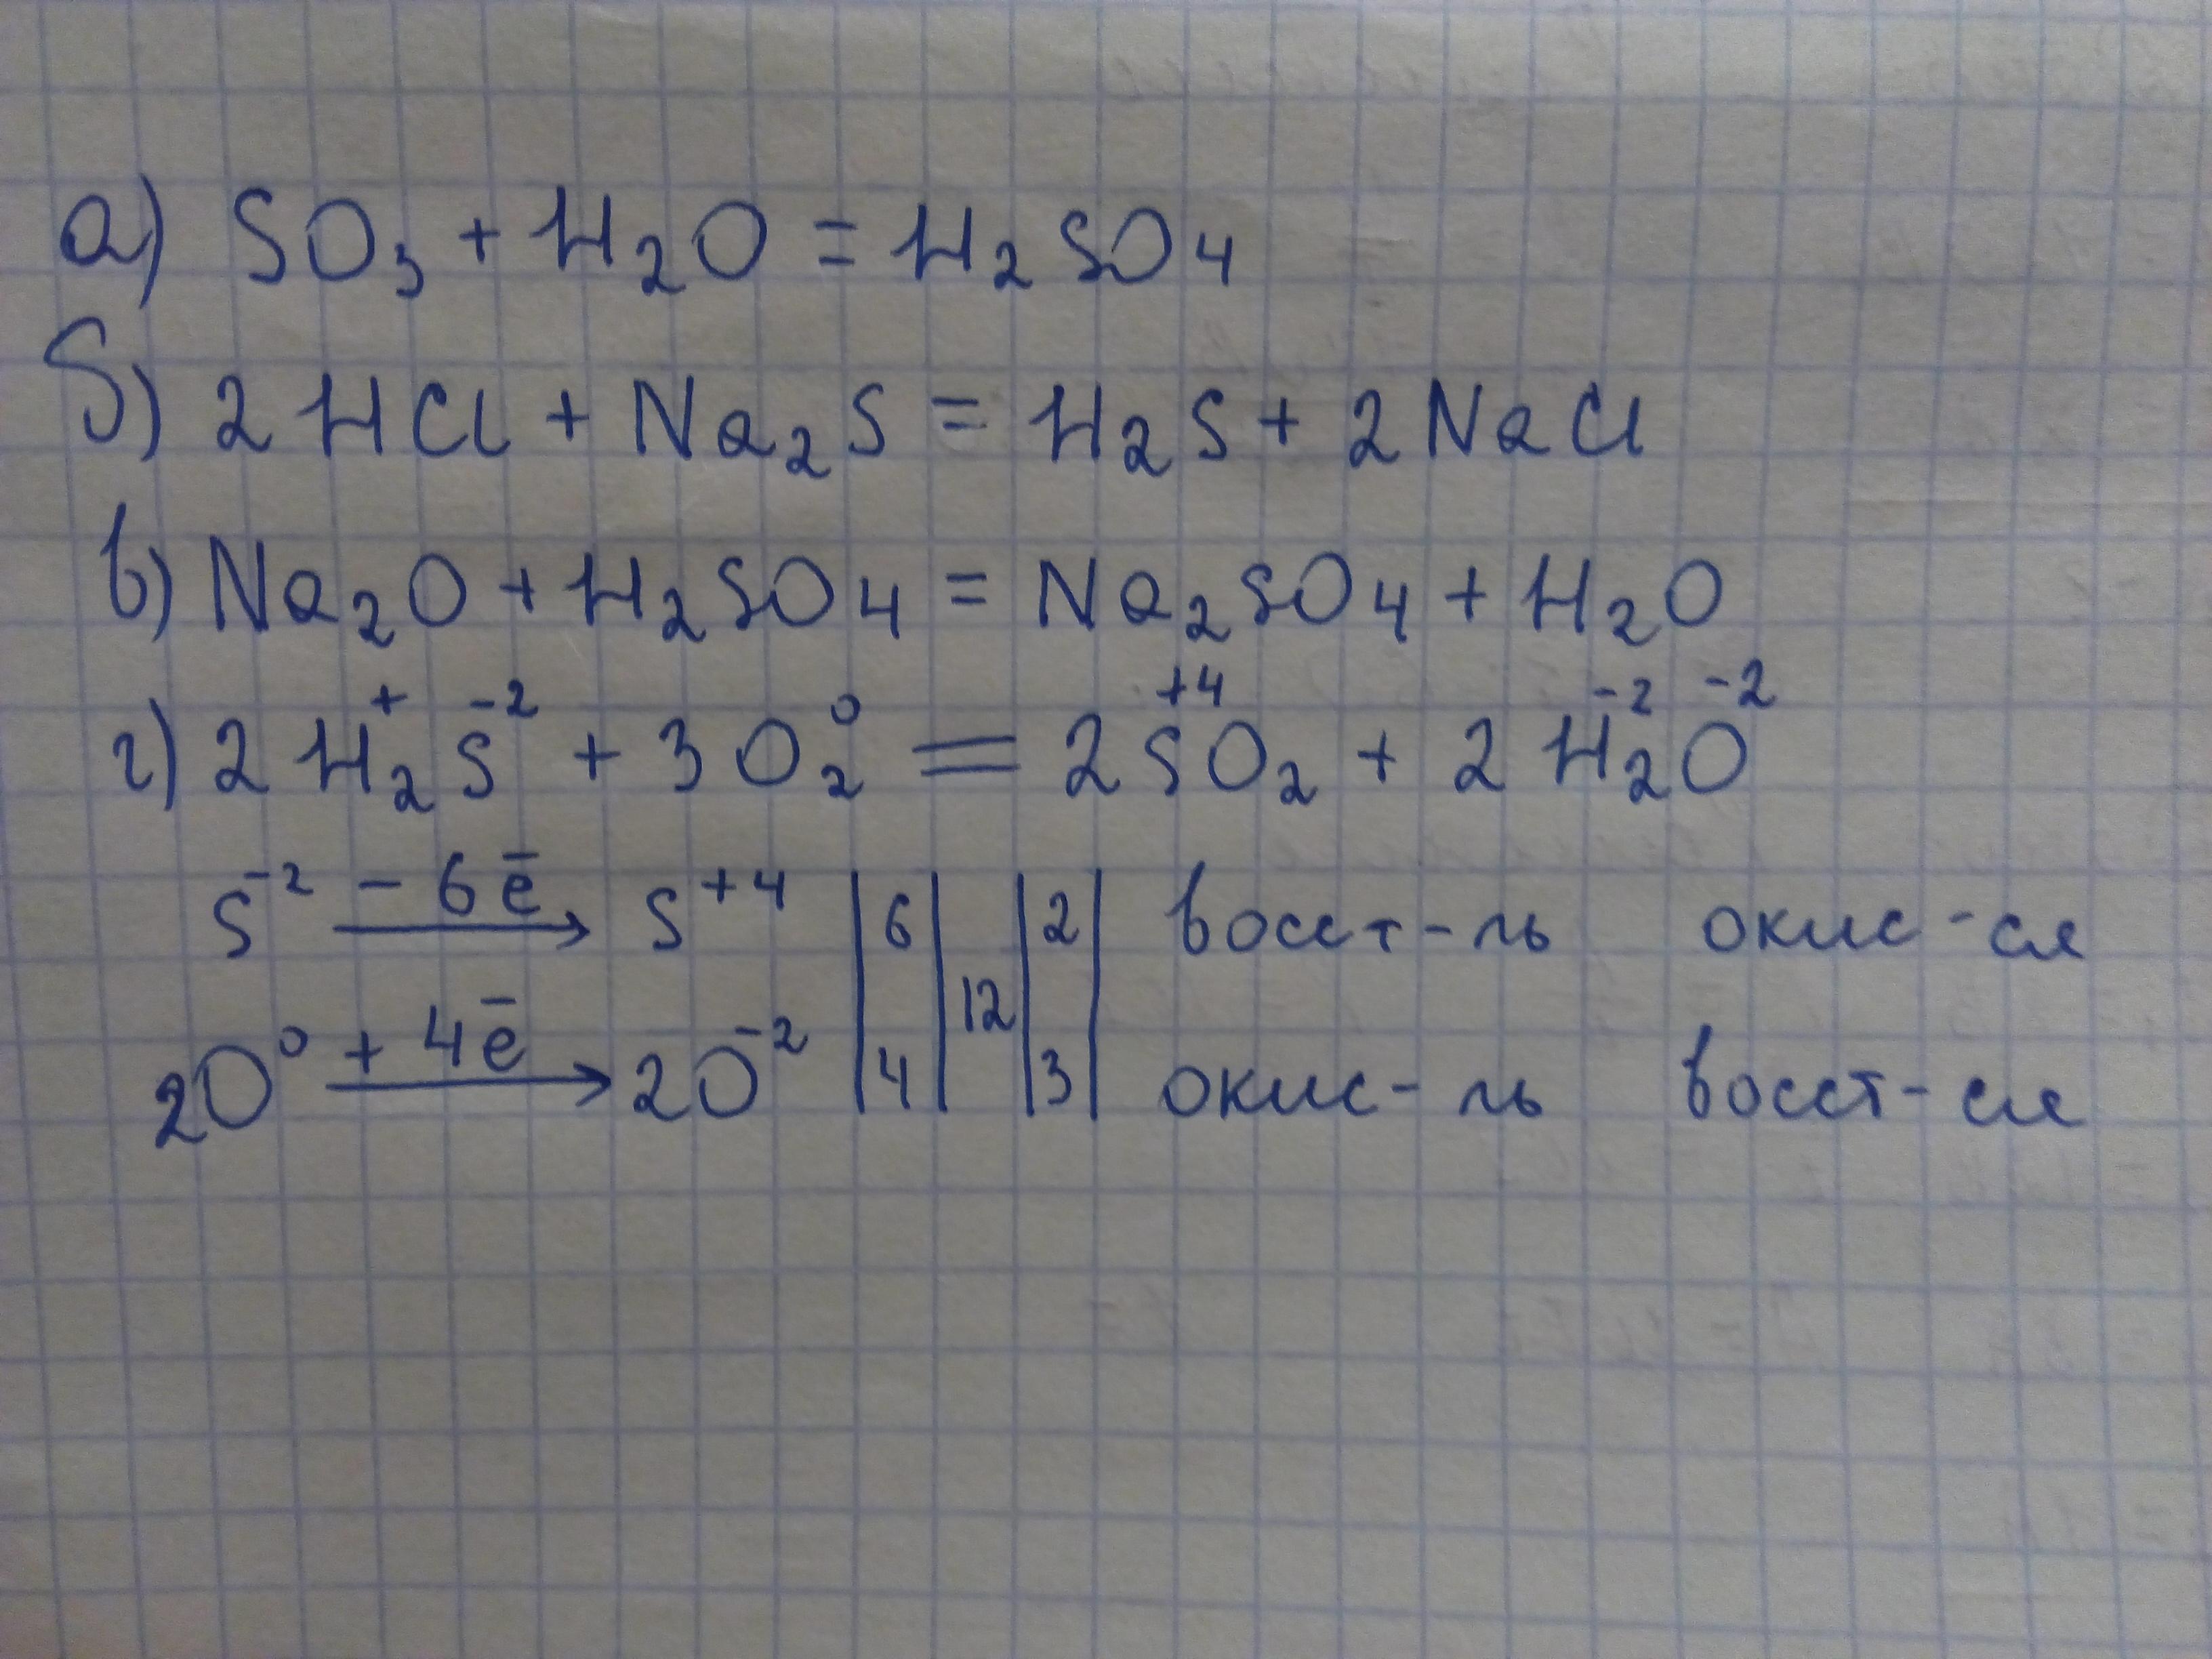 а) SO₃ + H₂O = H₂SO₄
б) 2HCl + Na₂S = H₂S + 2NaCl
в) Na₂O + H₂SO₄ = Na₂SO₄ + H₂O
г) 2H₂⁺S⁻² + 3O₂⁰ = 2S⁺⁴O₂ + 2H₂⁻²O⁻²
S⁻² − 6ē → S⁺⁴ | 6 | | 2 | восст-ль окис-ся
12
2O⁰ + 4ē → 2O⁻² | 4 | | 3 | окис-ль восст-ся